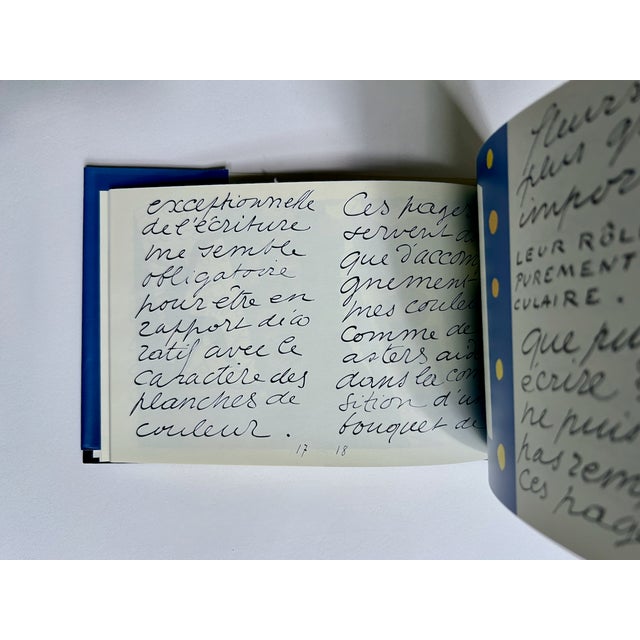 exceptionnelle
de l'écriture
me semble
obligatoire
pour être en
rapport déco
ratif avec le
caractère des
planches de
couleur.
17
Ces pages
servent
que d'accom
gnement
mes couleu
comme de
asters
dans la com
sition d'u
bouquet de
18
fleurs
plus
impor
LEUR RÔL
PUREMENT
CULAIRE.
que pui
écrire
ne puis
pas remp
ces page